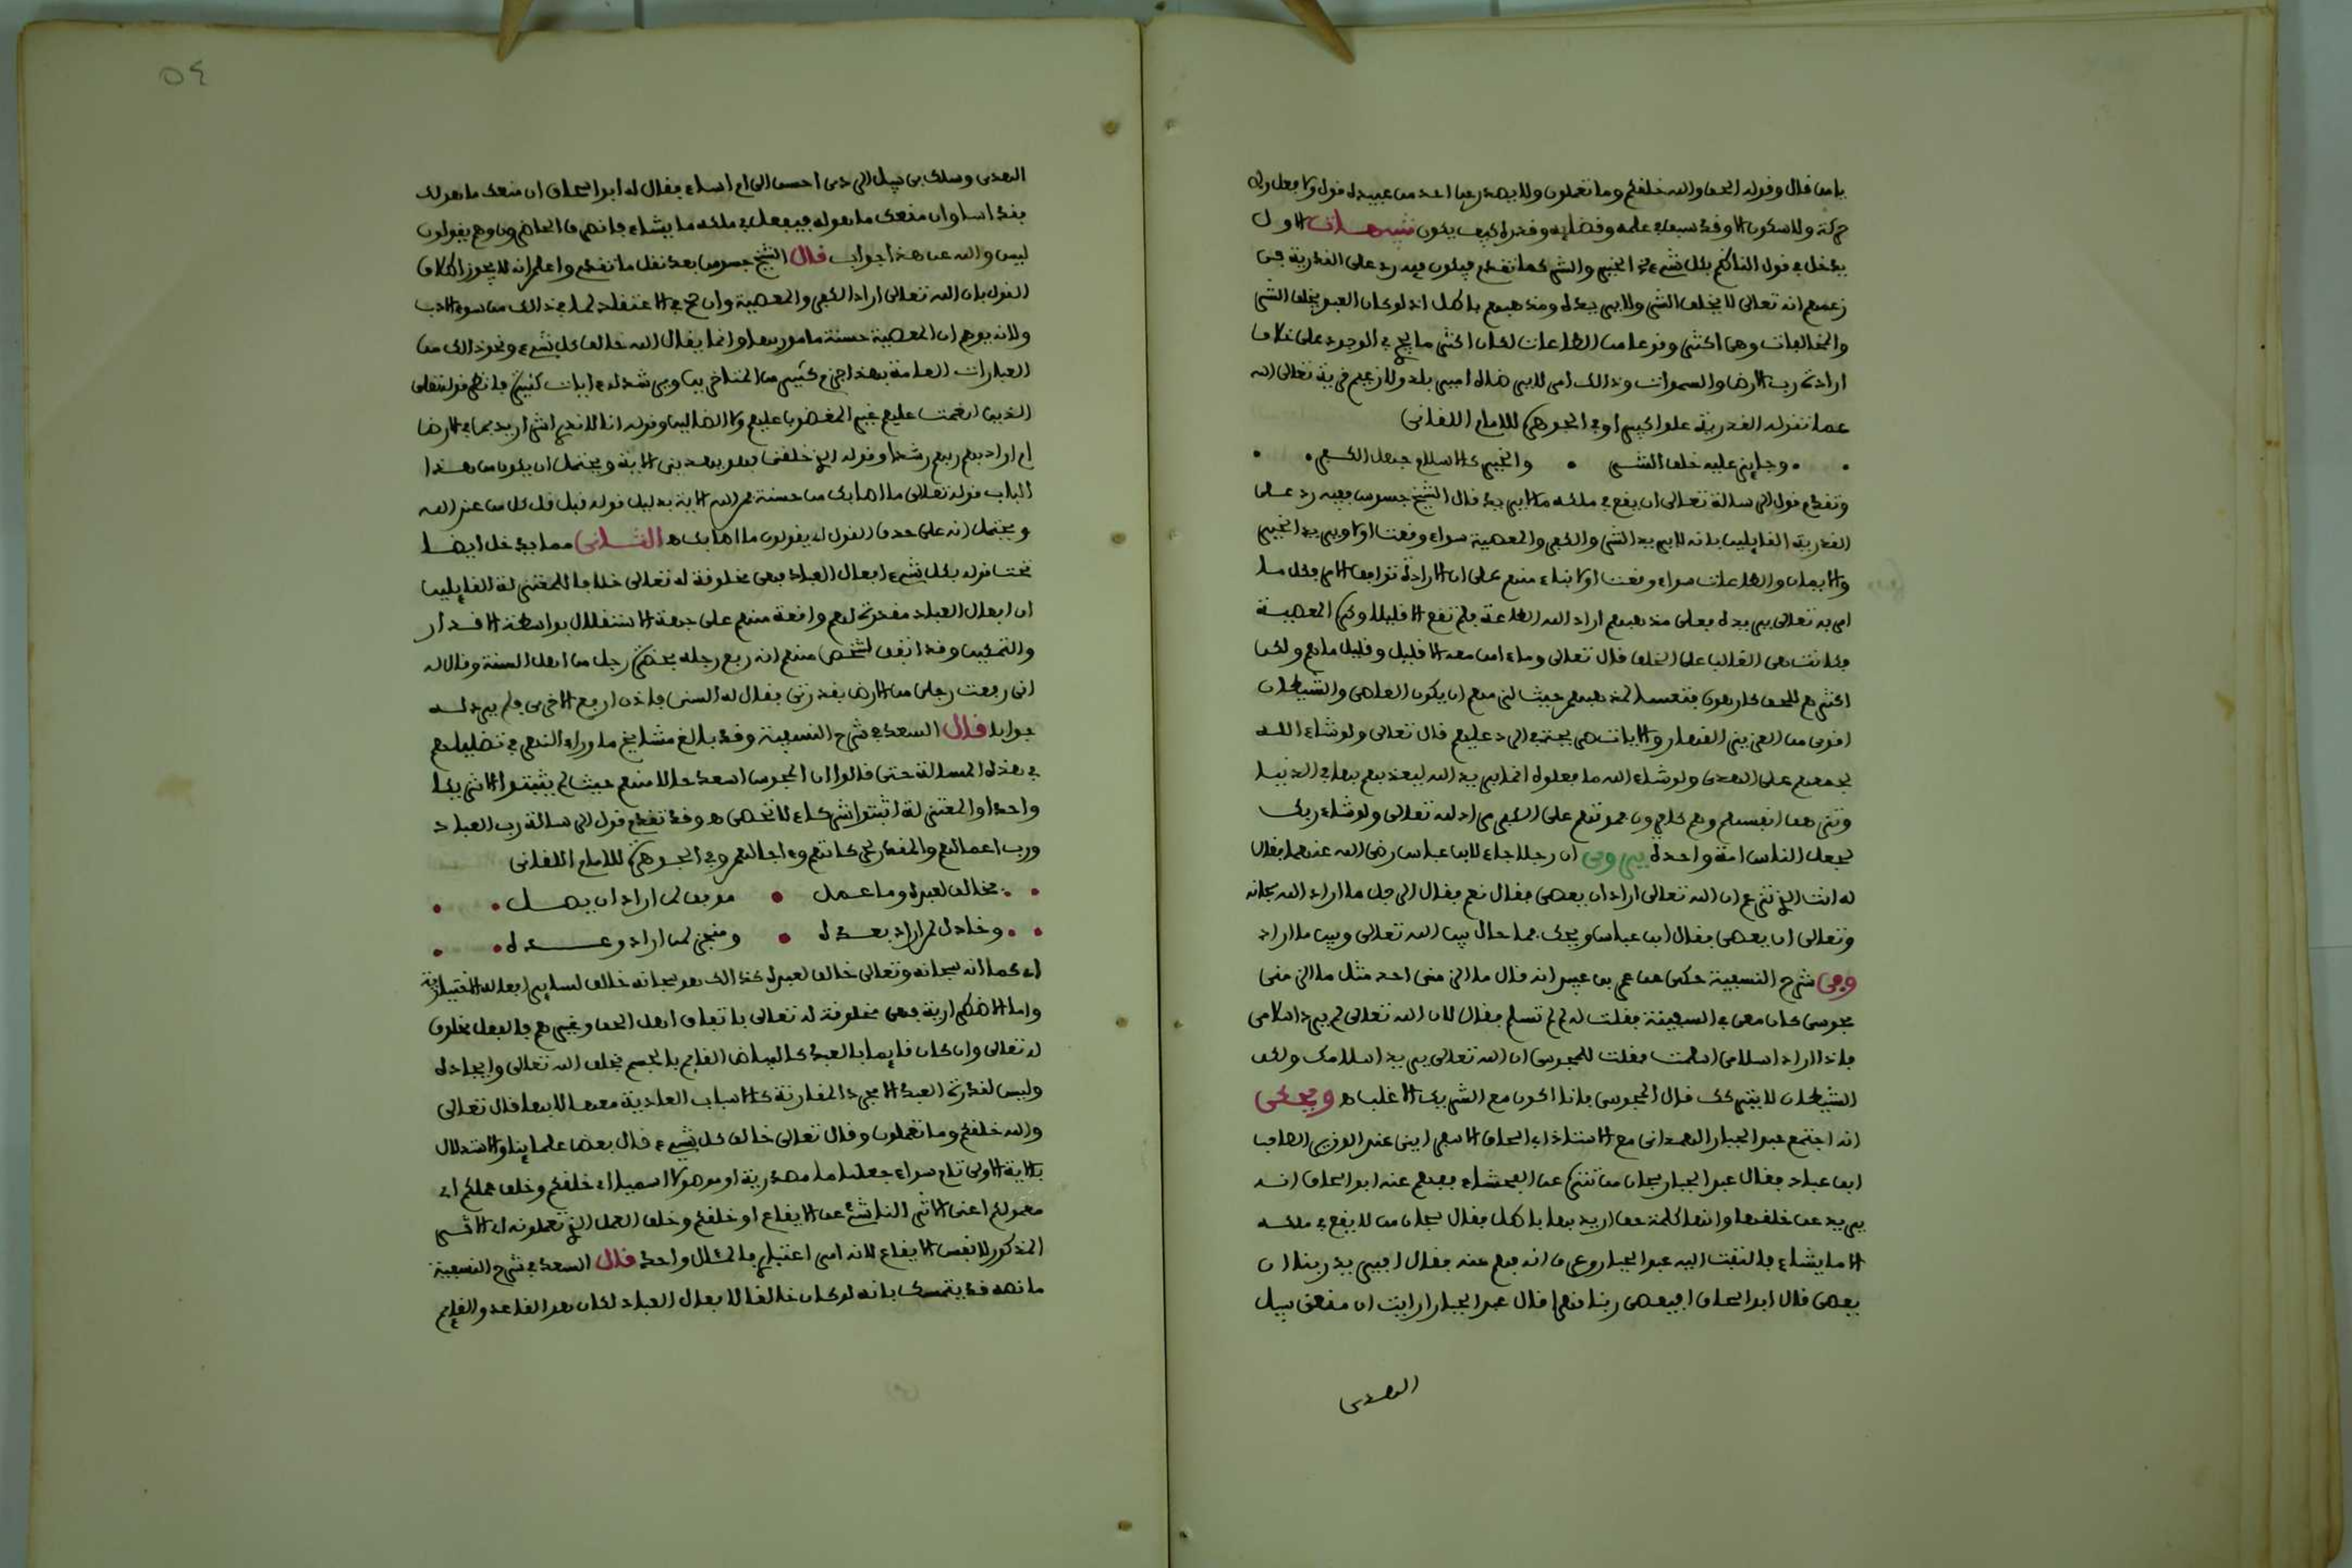 يامن قال وقوله الحق والله خلقكم وما تعملون ولا يصدر عن احد من عبيده قول ولا فعل ولا
حركة ولا سكون الا وقد سبق في علمه وقضائه وقدره كيف يكون تنبيهات الاول
يدخل في قول الناظم بكل شيء الخير والشر كما تقدم فيكون فيه رد على القدرية في
زعمهم انه تعالى لا يخلق الشر ولا يريده ومذهبهم باطل اذ لو كان العبد يخلق الشر
والمخالفات وهي اكثر وقوعا من الطاعات لكان اكثر ما يجري في الوجود على خلاف
ارادة رب الارض والسموات وذالك امر لا يرضاه امير بلد ولا زعيم قرية تعالى الله
عما تقوله القدرية علوا كبيرا وفي الجوهرة للامام اللقاني
وجائز عليه خلق الشر والخير كالاسلام وجهل الكفر
وتقدم قول الرسالة تعالى ان يقع في ملكه ما لا يريد قال الشيخ جسوس ففيه رد على
القدرية القايلين بانه لا يريد الشر والكفر والمعصية سواء وقعت او لا ويريد الخير
والايمان والطاعات سواء وقعت او لا بناء منهم على ان الارادة توافق الامر فكل ما
امر به تعالى يريده فعلى مذهبهم اراد الله الطاعة فلم تقع الا قليلا وكره المعصية
فكانت هي الغالب على الخلق قال تعالى وما ءامن معه الا قليل وقليل ما هم ولكن
اكثرهم للحق كارهون فتعسا لمذهبهم حيث لزمهم ان يكون العاصي والشيطان
اقوى من العزيز القهار والايات هي حجته في الرد عليهم قال تعالى ولو شاء الله
لجمعهم على الهدى ولو شاء الله ما فعلوه انما يريد الله ليعذبهم بها في الدنيا
وتزهق انفسهم وهم كافرون فموتهم على الكفر مراد لله تعالى ولو شاء ربك
لجعل الناس امة واحدة يروى ان رجلا جاء لابن عباس رضي الله عنهما فقال
له انت الذي تزعم ان الله تعالى اراد ان يعصى فقال نعم فقال الرجل ما اراد الله سبحانه
وتعالى ان يعصى فقال ابن عباس ويحك فما حال بين الله تعالى وبين ما اراد
وفي شرح النسفية حكي عن عمرو بن عبيد انه قال ما الزمني احد مثل ما الزمني
مجوسي كان معي في السفينة فقلت له لم لم تسلم فقال لان الله تعالى لم يرد اسلامي
فاذا اراد اسلامي اسلمت فقلت للمجوسي ان الله تعالى يريد اسلامك ولكن
الشيطان لا يتركك قال المجوسي فانا اكون مع الشريك الاغلب ه ويحكى
انه اجتمع عبد الجبار الهمداني مع الاستاذ ابي اسحاق الاسفرايني عند الوزير الصاحب
ابن عباد فقال عبد الجبار سبحان من تنزه عن الفحشاء ففهم عنه ابو اسحاق انه
يريد عن خلقها وانها كلمة حق اريد بها باطل فقال سبحان من لا يقع في ملكه
الا ما يشاء فالتفت اليه عبد الجبار وعرف انه فهم عنه فقال ايريد ربنا ان
يعصى قال ابو اسحاق ايعصى ربنا قهرا فقال عبد الجبار ارايت ان منعني سبيل
الهدى
٥٤
الهدى وسلك بي سبيل الردى احسن الي ام اساء فقال له ابو اسحاق ان منعك ما هو لك
فقد اسا وان منعك ما هو له فيفعل في ملكه ما يشاء فانصرف الحاضرون وهم يقولون
ليس والله عن هذا جواب قال الشيخ جسوس بعد نقل ما تقدم واعلم انه لا يجوز اطلاق
القول بان الله تعالى اراد الكفر والمعصية وان صح في الاعتقاد لما في ذالك من سوء الادب
ولانه يوهم ان المعصية حسنة مامور بها وانما يقال الله خالق كل شيء ونحو ذالك من
العبارات العامة بهذا جزم كثير من المتاخرين ويرشد له ءايات كثيرة فانظر قوله تعالى
الذين انعمت عليهم غير المغضوب عليهم ولا الضالين وقوله انا لا ندري اشر اريد بمن في الارض
ام اراد بهم ربهم رشدا وقوله الذي خلقني فهو يهدين الاية ويحتمل ان يكون من هذا
الباب قوله تعالى ما اصابك من حسنة فمن الله الاية بدليل قوله قبل قل كل من عند الله
ويحتمل انه على حذف القول اي يقولون ما اصابك ه الثاني مما يدخل ايضا
تحت قوله بكل شيء افعال العباد فهي مخلوقة له تعالى خلافا للمعتزلة القايلين
ان افعال العباد مقدرة لهم واقعة منهم على جهة الاستقلال بواسطة الاقدار
والتمكين وقد اتفق لشخص منهم انه رفع رجله بحضرة رجل من اهل السنة وقال له
اني رفعت رجلي من الارض بقدرتي فقال له السني فاذن ارفع الاخرى فلم يرد له
جوابا قال السعد في شرح النسفية وقد بالغ مشايخ ما وراء النهر في تضليلهم
في هذه المسالة حتى قالوا ان المجوس اسعد حالا منهم حيث لم يثبتوا الا شريكا
واحدا والمعتزلة اثبتوا شركاء لا تحصى ه وقد تقدم قول الرسالة رب العباد
ورب اعمالهم والمقدر لحركاتهم وءاجالهم وفي الجوهرة للامام اللقاني
فخالق لعبده وما عمل موفق لمن اراد ان يصل
وخاذل لمن اراد بعده ومنجز لمن اراد وعده
اي كما انه سبحانه وتعالى خالق لعبده كذالك هو سبحانه خالق لساير افعاله الاختيارية
واما الاضطرارية فهي مخلوقة له تعالى باتفاق اهل الحق وغيرهم فالفعل مخلوق
له تعالى وان كان قايما بالعبد كالبياض القايم بالجسم بخلق الله تعالى وايجاده
وليس لقدرة العبد الا مجرد المقارنة كالاسباب العادية معها لا بها قال تعالى
والله خلقكم وما تعملون وقال تعالى خالق كل شيء قال بعض علماينا والاستدلال
بالاية الاولى تام سواء جعلت ما مصدرية او موصولا اسميا اي خلقكم وخلق عملكم اي
معمولكم اعني الاثر الناشئ عن الايقاع او خلقكم وخلق العمل الذي تعملونه اي الاثر
المذكور لا نفس الايقاع لانه امر اعتباري فالمئال واحد قال السعد في شرح النسفية
ما نصه قد يتمسك بانه لو كان خالقا لافعال العباد لكان هو القاعد والقايم